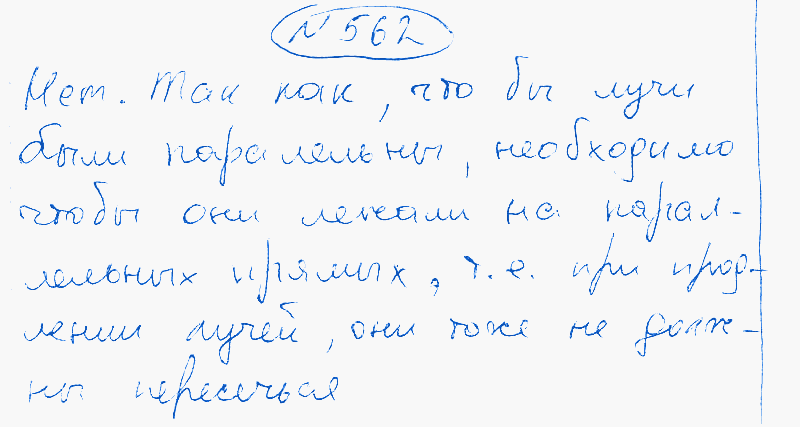 N 562
Нет. Так как, что бы лучи
были паралельны, необходимо
чтобы они лежали на парал-
лельных прямых, т.е. при прод-
лении лучей, они тоже не долж-
ны пересечься